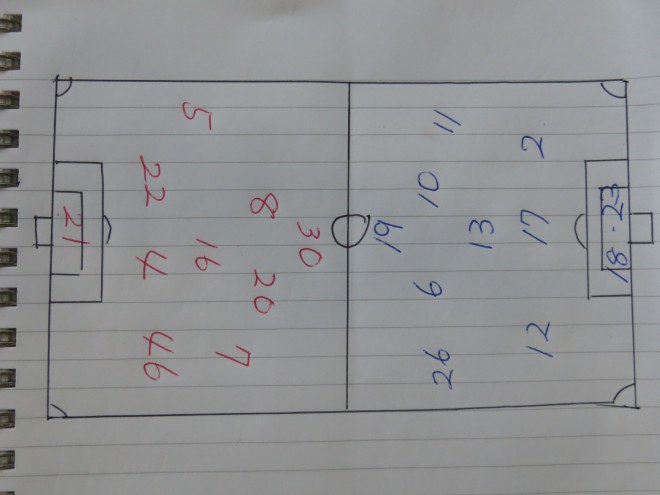 5
22
8
30
21
16
4
20
7
46
11
2
10
19
13
17
18・23
6
12
26